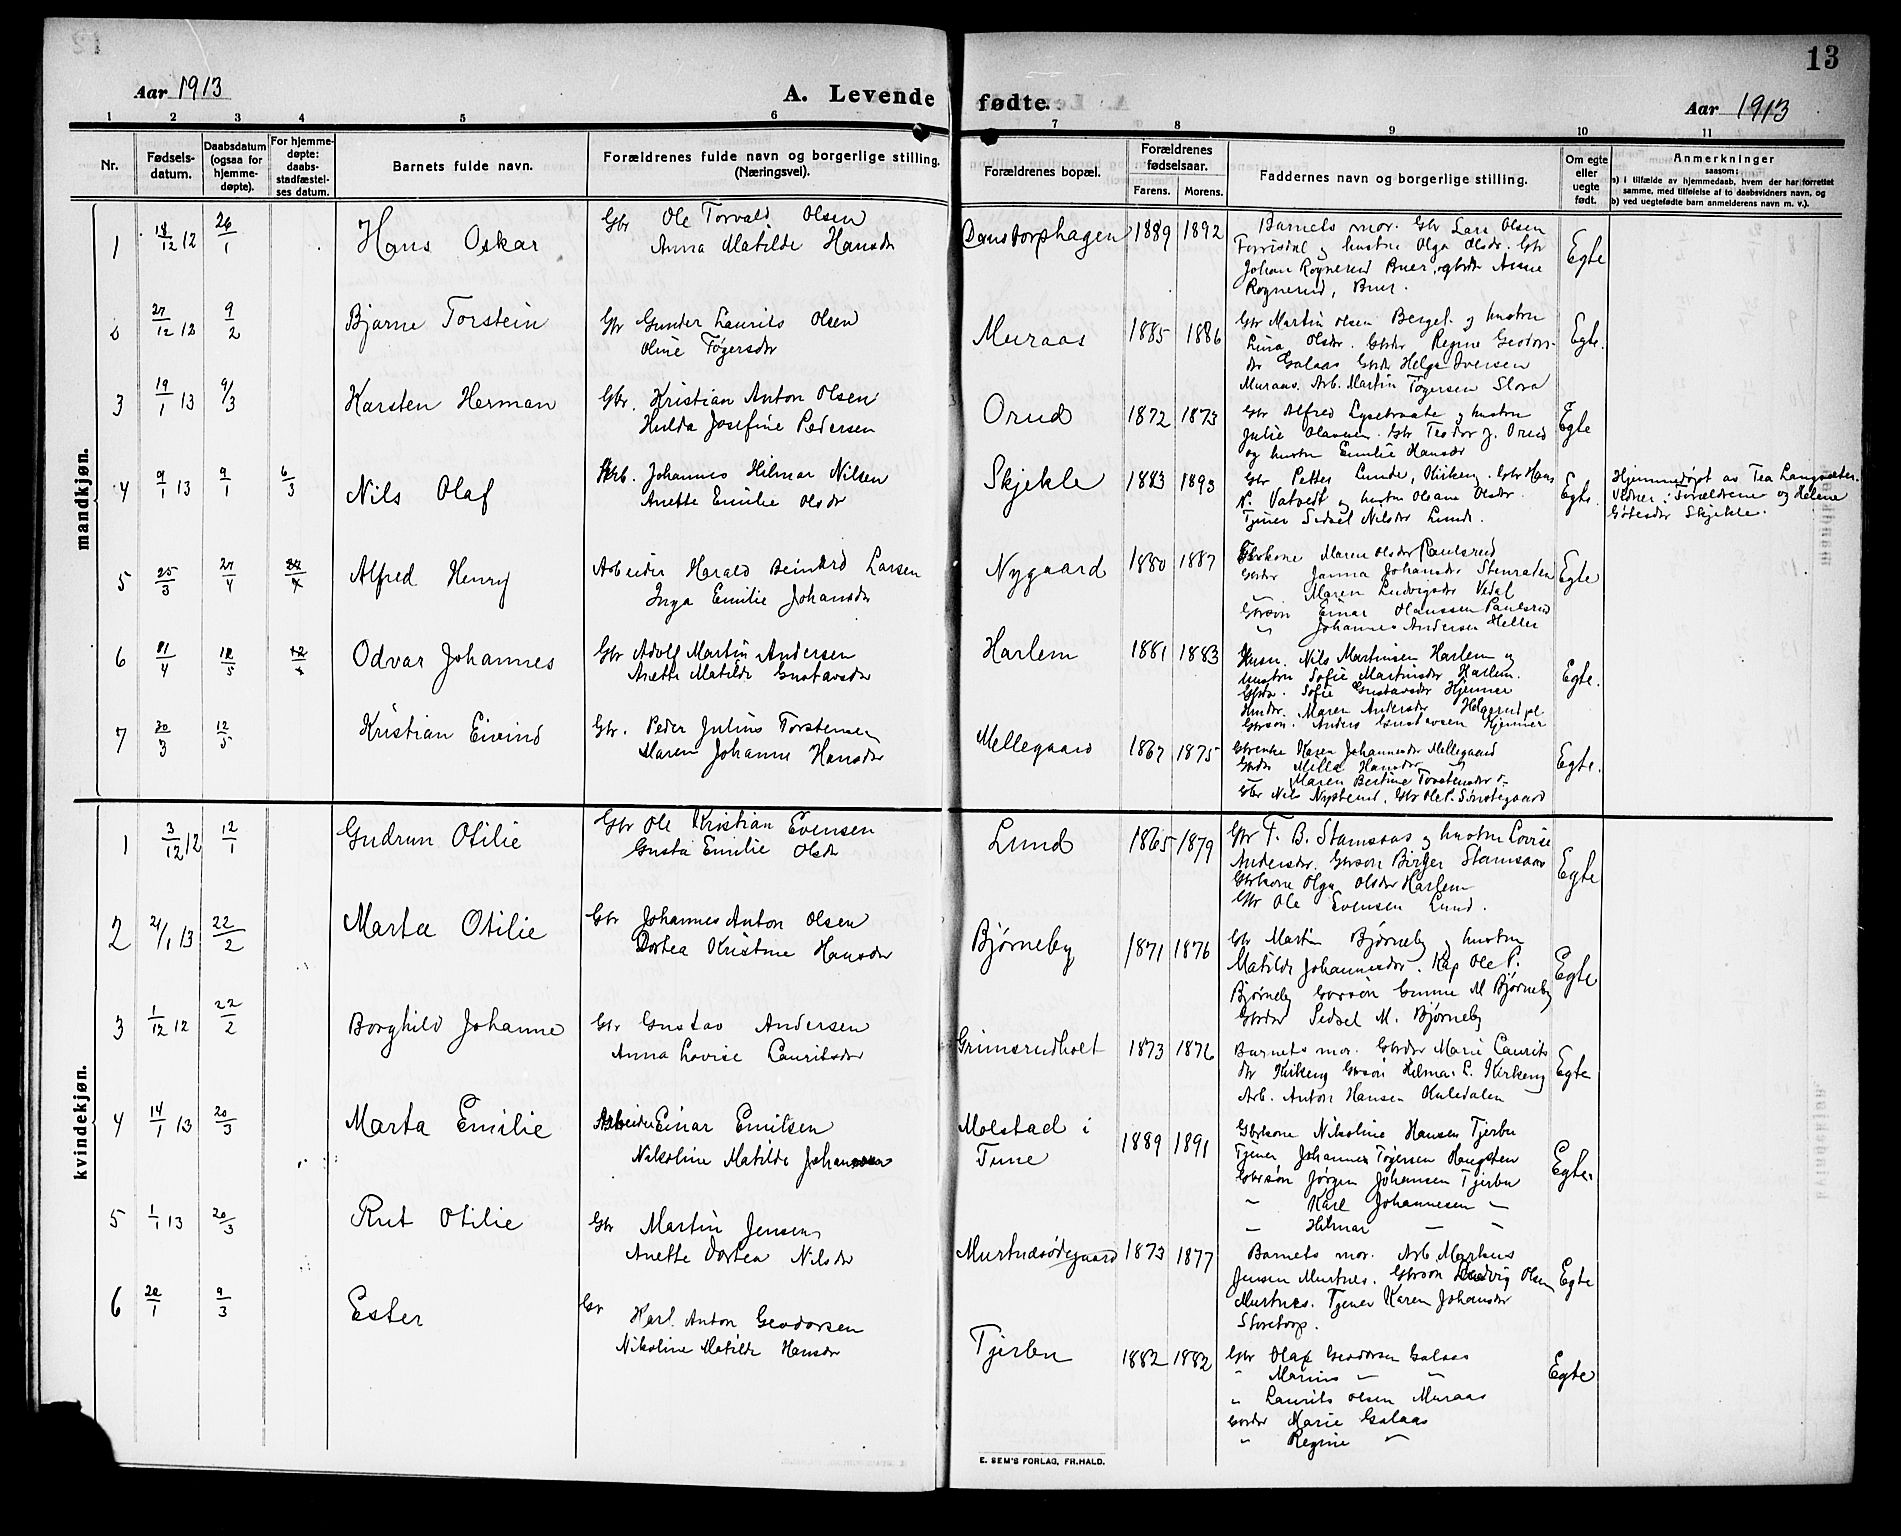 13
Aar 1913
A. Levende fødte.
Aar 1913
1 2 3 4 5 6 7 8 9 10 11
Nr.
Fødsels-
datum.
Daabsdatum
(ogsaa for
hjemme-
døpte).
For hjemme-
døpte:
daabs-
stadfæstel-
ses datum.
Barnets fulde navn.
Forældrenes fulde navn og borgerlige stilling.
(Næringsvei).
Forældrenes bopæl.
Forældrenes
fødselsaar.
Farens. Morens.
Faddernes navn og borgerlige stilling.
Om egte
eller
uegte
født.
Anmerkninger
saasom:
a) i tilfælde av hjemmedaab, hvem der har forrettet
samme, med tilføielse af to daabsvidners navn, og
b) ved uegtefødte barn anmelderens navn m. v.).
mandkjøn.
1 18/12 12 26/1 Hans Oskar Gbr Ole Torvald Olsen
Anna Matilde Hansdr
Danstorphagen 1889 1892 Barnets mor. Gbr Lars Olsen
Torrisdal og hustru Olga Olsdr. Gbr
Johan Rognerud Buer, gbrdr Anne
Rognerud, Buer.
Egte
2 27/12 12 9/2 Bjarne Torstein Gbr Gunder Laurits Olsen
Oline Tøgersdr
Muraas 1885 1886 Gbr Martin Olsen Berget og hustru
Lina Olsdr. Gbrdr Regine Geodors-
dr Galaas Gbrdr Helga Iversen
Muraas. Arb. Martin Tøgersen Slora
Egte.
3 19/1 13 9/3 Karsten Herman Gbr. Kristian Anton Olsen
Hulda Josefine Pedersen
Orud 1872 1873 Gbr Alfred Lysebraate og hustru
Julie Olavsen. Gbr Teodor J. Orud
og hustru Emilie Hansdr
Egte
4 9/1 13 9/1 6/3 Nils Olaf Arb. Johannes Hilmar Nilsen
Anette Emilie Olsdr
Skjekle 1883 1893 Gbr Petter Lunde, Kirkeng. Gbr Hans
P. Vatvedt og hustru Olsane Olsdr.
Tjener Sedsel Nilsdr Lunde.
Egte. Hjemmedøpt av Tea Langsæter.
Vidner: Forældrene og Helene
Gøtesdr Skjekle.
5 25/3 27/4 Alfred Henry Arbeider Harald Beinhard Larsen
Inga Emilie Johansdr
Nygaard 1880 1887 Gbrkone Maren Olsdr Paulsrud
Gbrdr Janna Johansdr Stenraden
" Maren Ludvigsdr Vedal
Gbrsøn Einar Hanssen Paulsrud
" Johannes Andersen Heller
Egte
6 21/4 12/5 Odvar Johannes Gbr Adolf Martin Andersen
Anette Matilde Gustavsdr
Harlem 1881 1883 Husm. Nils Martinsen Harlem og
hustru Sofie Martinsdr Harlem.
Gbrdr. Sofie Gustavsdr Hjenner
Husdr. Maren Andersdr Helgerud pl
Gbrsøn. Anders Gustavsen Hjenner
Egte.
7 30/3 12/5 Kristian Eivind Gbr. Peder Julius Torstensen
Maren Johanne Hansdr
Mellegaard 1867 1875 Gbrenke Karen Johannesdr Mellegaard
Gbrdr Milla Hansdr "
" Maren Bertine Torstensdr "
Gbr Nils Nysterud, Gbr Ole P. Sørstegaard
Egte.
kvindekjøn.
1 3/12 12 12/1 Gudrun Otilie Gbr Ole Kristian Evensen
Gusta Emilie Olsdr
Lund 1865 1879 Gbr T. B. Stamsaas og hustru Lovise
Andersdr. Gbrsøn Birger Stamsaas
Gbrkone Olga Olsdr Harlem
Gbr Ole Evensen Lund.
Egte
2 21/1 13 22/2 Marta Otilie Gbr Johannes Anton Olsen
Dortea Kristine Hansdr
Bjørneby 1871 1876 Gbr Martin Bjørneby og hustru
Matilde Johannesdr. Kap Ole P.
Bjørneby Gbrsøn Gunne M Bjørneby
Gbrdr Sedsel M. Bjørneby
Egte
3 1/12 12 22/2 Borghild Johanne Gbr Gustav Andersen
Anna Lovise Lauritsdr
Grimsrudholt 1873 1876 Barnets mor. Gbrdr Marie Laurits
dr Kirkeng Gbrsøn Hilmar L. Kirkeng
Arb. Anton Hansen Huledalen
Egte
4 14/1 13 20/3 Marta Emilie Arbeider Einar Emilsen
Nikoline Matilde Johannesen
Molstad i
Tune 1889 1891 Gbrkone Nikoline Hansen Tjerbu
Tjener Johannes Tøgersen Haugsten
Gbrsøn Jørgen Johansen Tjerbu
" Karl Johannesen "
" Hilmar " "
Egte.
5 1/1 13 20/3 Rut Otilie Gbr Martin Jensen
Anette Dortea Nilsdr
Murtnesødegaard 1873 1877 Barnets mor. Arb Markus
Jensen Murtnes. Gbrsøn Ludvig Olsen
Murtnes. Tjener Karen Johansdr
Storetorp.
Egte
6 20/1 9/3 Ester Gbr Karl Anton Geodorsen
Nikoline Matilde Hansdr
Tjerbu 1882 1882 Gbr Olaf Geodorsen Galaas
" Marius " "
" Laurits Olsen Muraas
Gbrdr Marie Galaas
" Regine "
Egte
E. SEM'S FORLAG, FR.HALD.